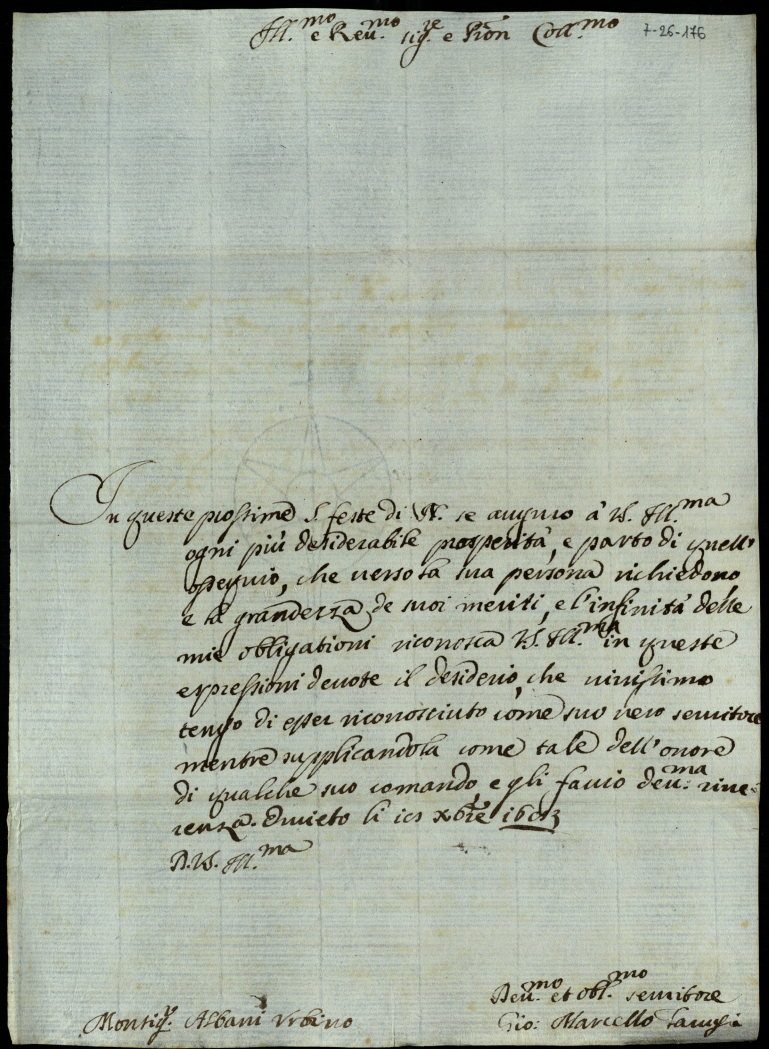 Ill.mo e Reu.mo sig.re e Pron Coll.mo
7-26-176
In queste prossime S. feste di N. se auguro à V. Ill.ma
ogni più desiderabile prosperità, e parto di quell'
ossequio, che verso la sua persona richiedono
e la grandezza de suoi meriti, e l'infinità delle
mie obligationi riconosca V. Ill.ma in queste
espressioni deuote il desiderio, che viuissimo
tengo di esser riconosciuto come suo vero seruitore
mentre supplicandola come tale dell'onore
di qualche suo comando, e gli faccio deu.ma riue-
renza. Oruieto li Xbre
D. V. Ill.ma
Deu.mo et obl.mo seruitore
Monsig.r Albani Urbino
Gio: Marcello